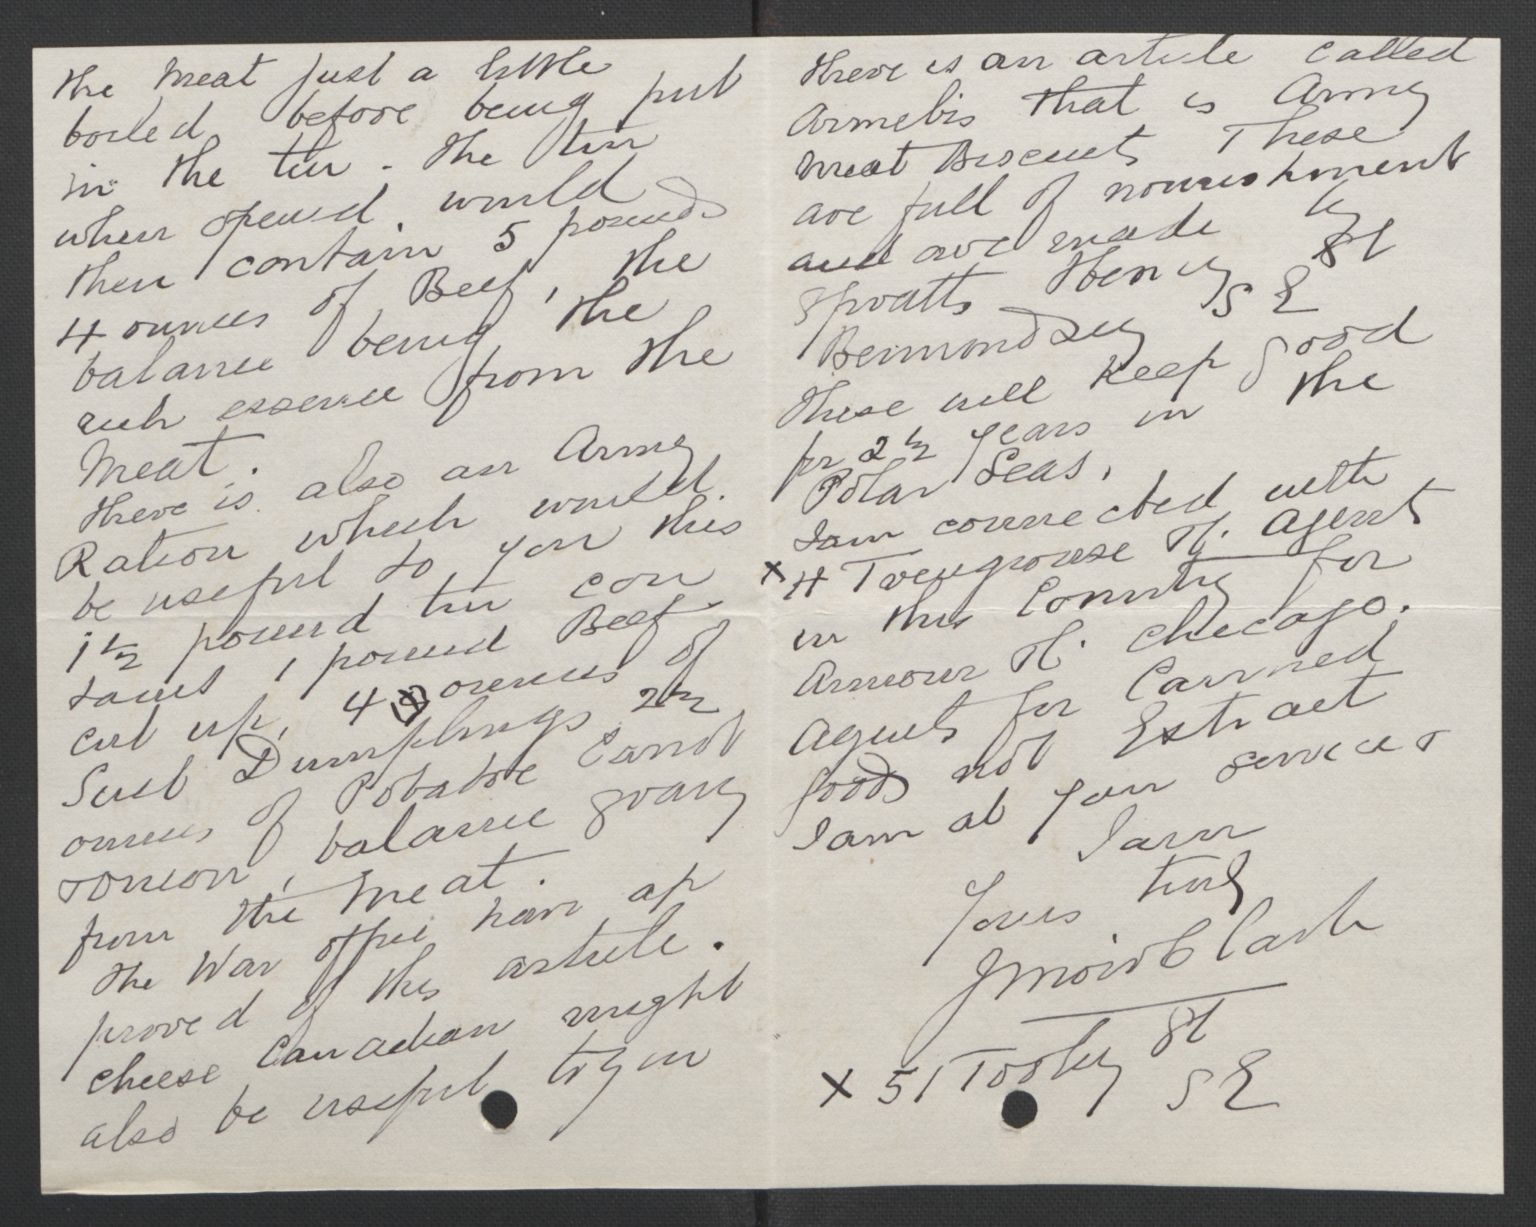 the meat just a little
boiled before being put
in the tin. the tin
when opened would
then contain 5 pounds
4 ounces of Beef, the
balance being the
rich essence from the
Meat.
there is also an Army
Ration which would
be useful to you this
1 1/2 pound tin con
tains 1 pound Beef
cut up, 4 ounces of
Suet Dumplings 2 1/2
ounces of Potatoe Carrot
& onion, balance gravy
from the meat.
The War office have ap
proved of this article.
Cheese Canadian might
also be useful to you
there is an article called
Armebis that is Army
Meat Biscuits These
are full of nourishment
and are made by
Spratts Henry St
Bermondsey S E
these will keep good
for 2 1/2 years in the
Polar Seas.
I am connected with
x H Trengrouse & Co. agents
in this Country for
Armour & Co. Chicago.
Agents for Canned
goods not Extract
I am at your service &
I am
Yours truly
J Clark
x 51 Tooley St
S E